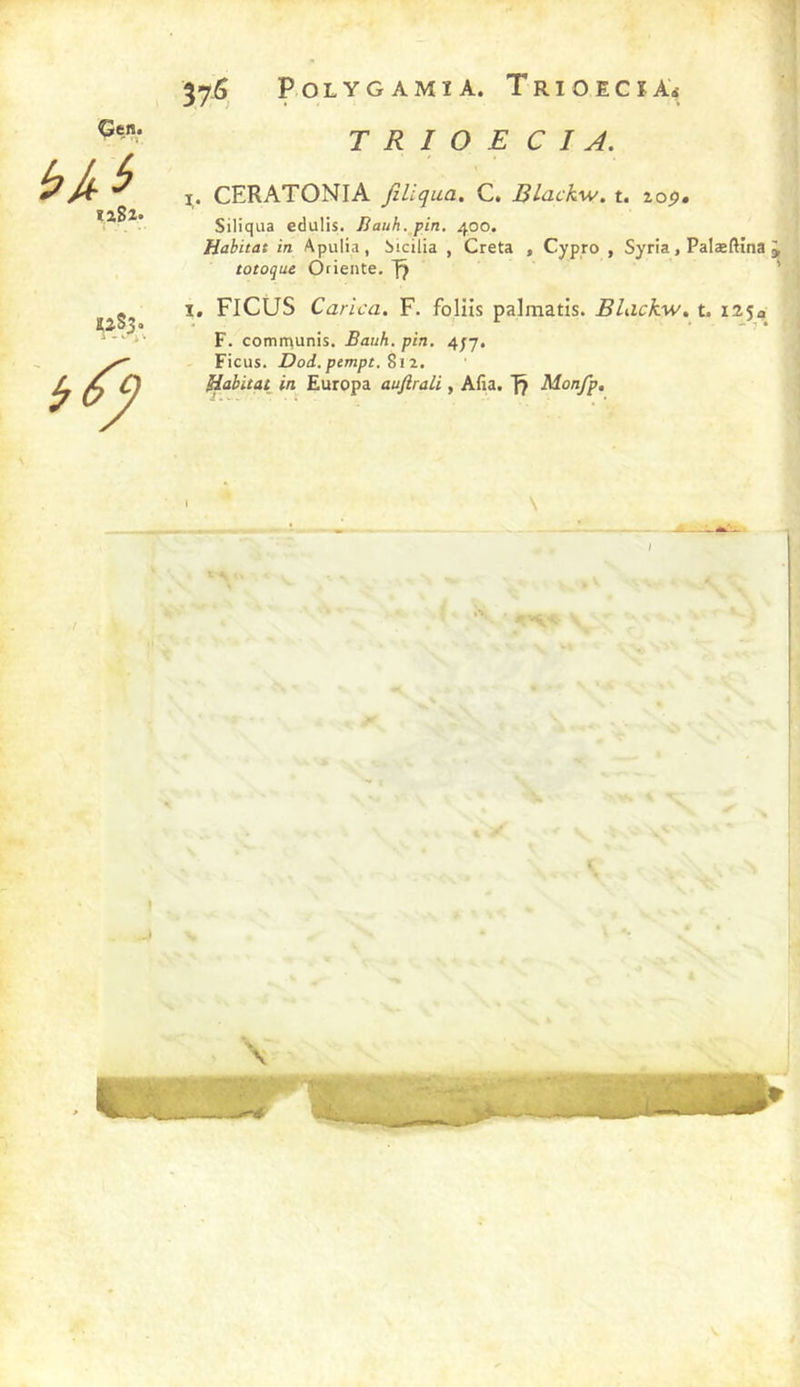 376 POLYGAMIA. TRIOECIA.
Gen.
TRIOECIA.
1282.
1. CERATONIA ſiliqua. C. Blackw. t. 209.
Siliqua edulis. Bauh. pin. 400.
Habitat in Apulia, Sicilia, Creta, Cypro, Syria, Palæſtina,
totoque Oriente. ♄
1283.
1. FICUS Carica. F. foliis palmatis. Blackw. t. 125.
F. communis. Bauh. pin. 457.
Ficus. Dod. pempt. 812.
569
Habitat in Europa auſtrali, Aſia. ♄ Monſp.